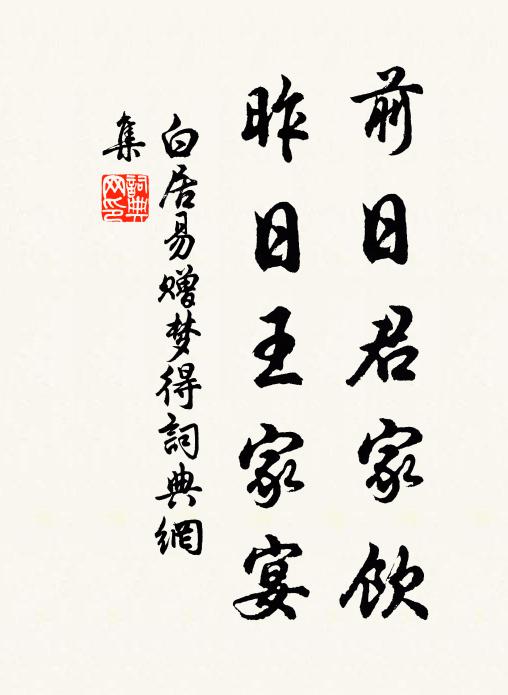 前日君家飲
昨日王家宴
白居易贈梦得詞典網
集
詞典
网印